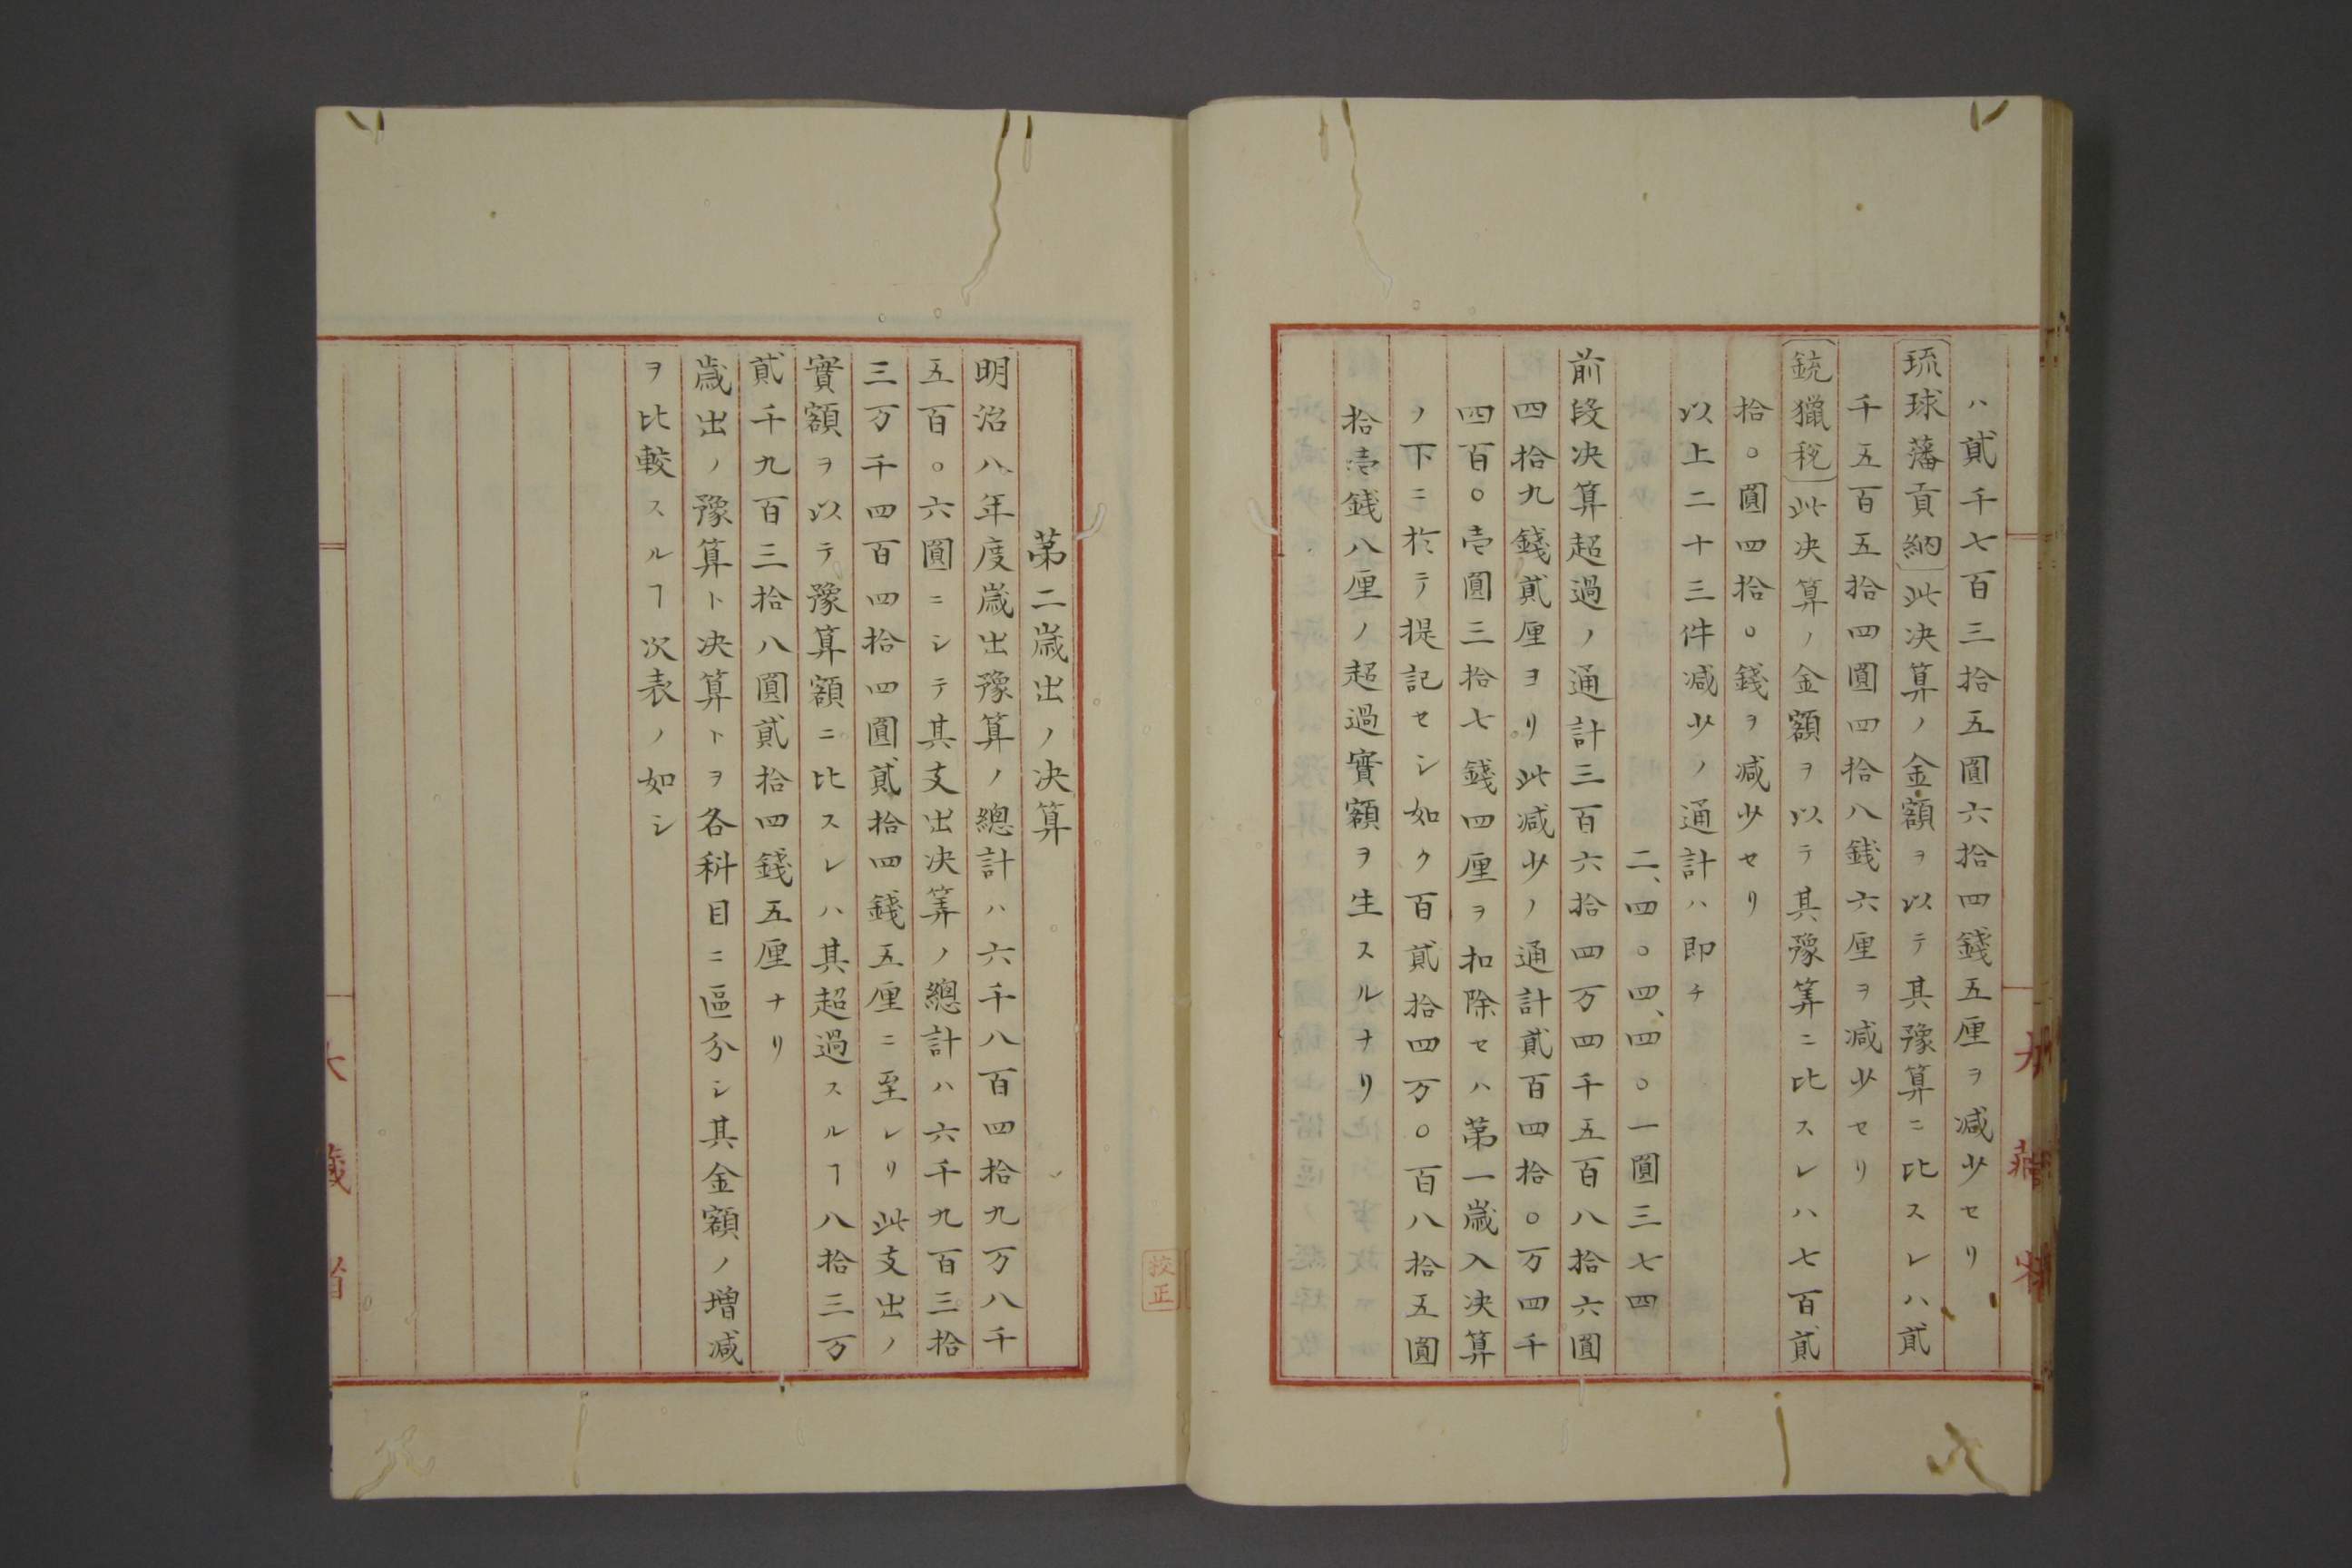 ハ貳千七百三拾五圓六拾四錢五厘ヲ减少セリ
琉球藩貢納此决算ノ金額ヲ以テ其豫算ニ比スレハ貳
千五百五拾四圓四拾八銭六厘ヲ减少セリ
銃獵税此决算ノ金額ヲ以テ其豫筭ニ比スレハ七百貳
拾〇圓四拾〇錢ヲ减少セリ
以上二十三件减少ノ通計ハ即チ
二、四〇四、四〇一圓三七四
前段决算超過ノ通計三百六拾四万四千五百八拾六圓
四拾九錢貳厘ヨリ此减少ノ通計貳百四拾〇万四千
四百〇壱圓三拾七錢四厘ヲ扣除セハ第一歳入决算
ノ下ニ於テ提記セシ如ク百貳拾四万〇百八拾五圓
拾壱錢八厘ノ超過實額ヲ生スルナリ
校正
第二歳出ノ决算
明治八年度歳出豫算ノ總計ハ六千八百四拾九万八千
五百〇六圓ニシテ其支出决筭ノ總計ハ六千九百三拾
三万千四百四拾四圓貳拾四錢五厘ニ至レリ此支出ノ
實額ヲ以テ豫算額ニ比スレハ其超過スルヿ八拾三万
貳千九百三拾八圓貳拾四錢五厘ナリ
歳出ノ豫算ト决算トヲ各科目ニ區分シ其金額ノ増减
ヲ比較スルヿ次表ノ如シ